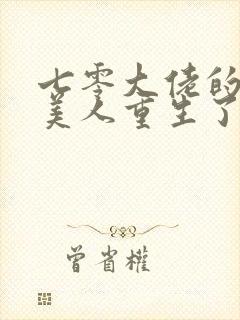 七零大佬的
美人重生了
曾省權